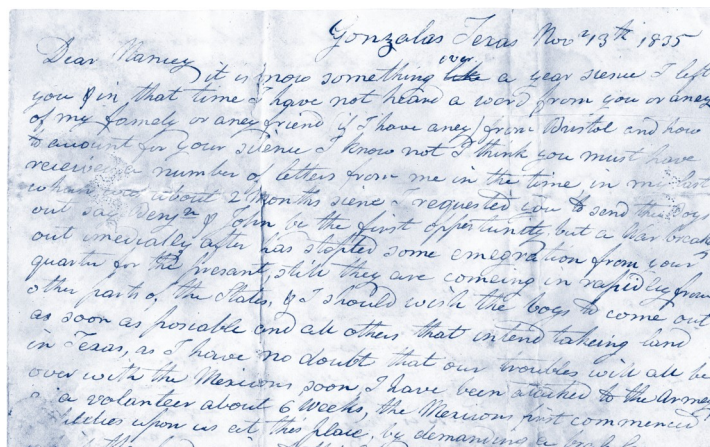 Gonzalas Texas Nov 13th 1835
Dear Nancy
it is now something over a year sience I left
you & in that time I have not heard a word from you or aney
of my famely or aney friend if I have aney) from Bristol and how
to account for your silence I know not I think you must have
received a number of letters from me in the time, in my last
which was about 2 months siene I requested you to send the Boys
out say Benjn & John be the first oppertunity, but a War breaking
out imediatly after has stopted some emegration from your
quarter for the presant, still they are comeing in rapidley from
other parts of the States, & I should wish the boys to come out
as soon as posiable and all others that intend takeing land
in Texas, as I have no doubt that our troubles will all be
over with the Mexicans soon I have been attached to the Armey
a volanteer about 6 weeks, the Mexicans first commenced
upon us at this place, by demanding a